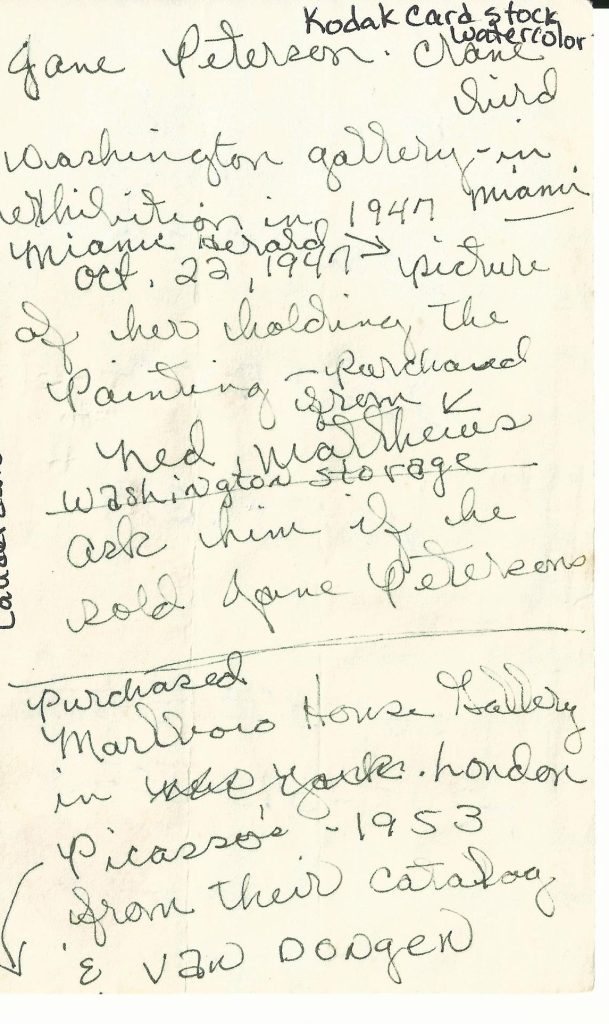 Kodak Card stock
watercolor
Jane Peterson. Crane
third
Washington gallery - in
exhibition in 1947 Miami
Miami Herald
Oct. 22, 1947 → picture
of her holding the
Painting - purchased
from
Ned Matthews
Washington Storage
ask him if he
sold Jane Petersons
purchased
Marlboro House Gallery
in New York. London
Picasso's - 1953
from their catalog
& VAN DONGEN